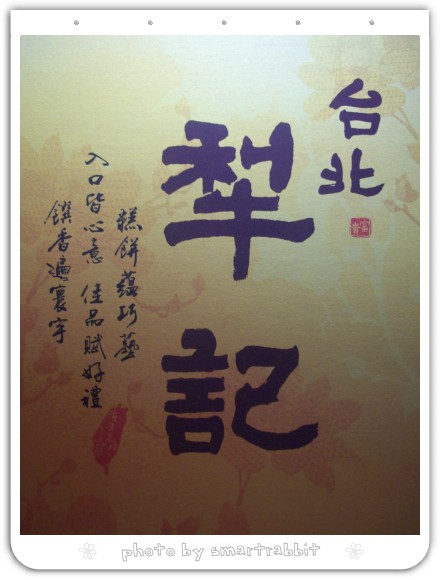 台北
犁記
糕餅蘊巧藝
入口皆心意 佳品賦好禮
饌香遍寰宇
photo by smartrabbit